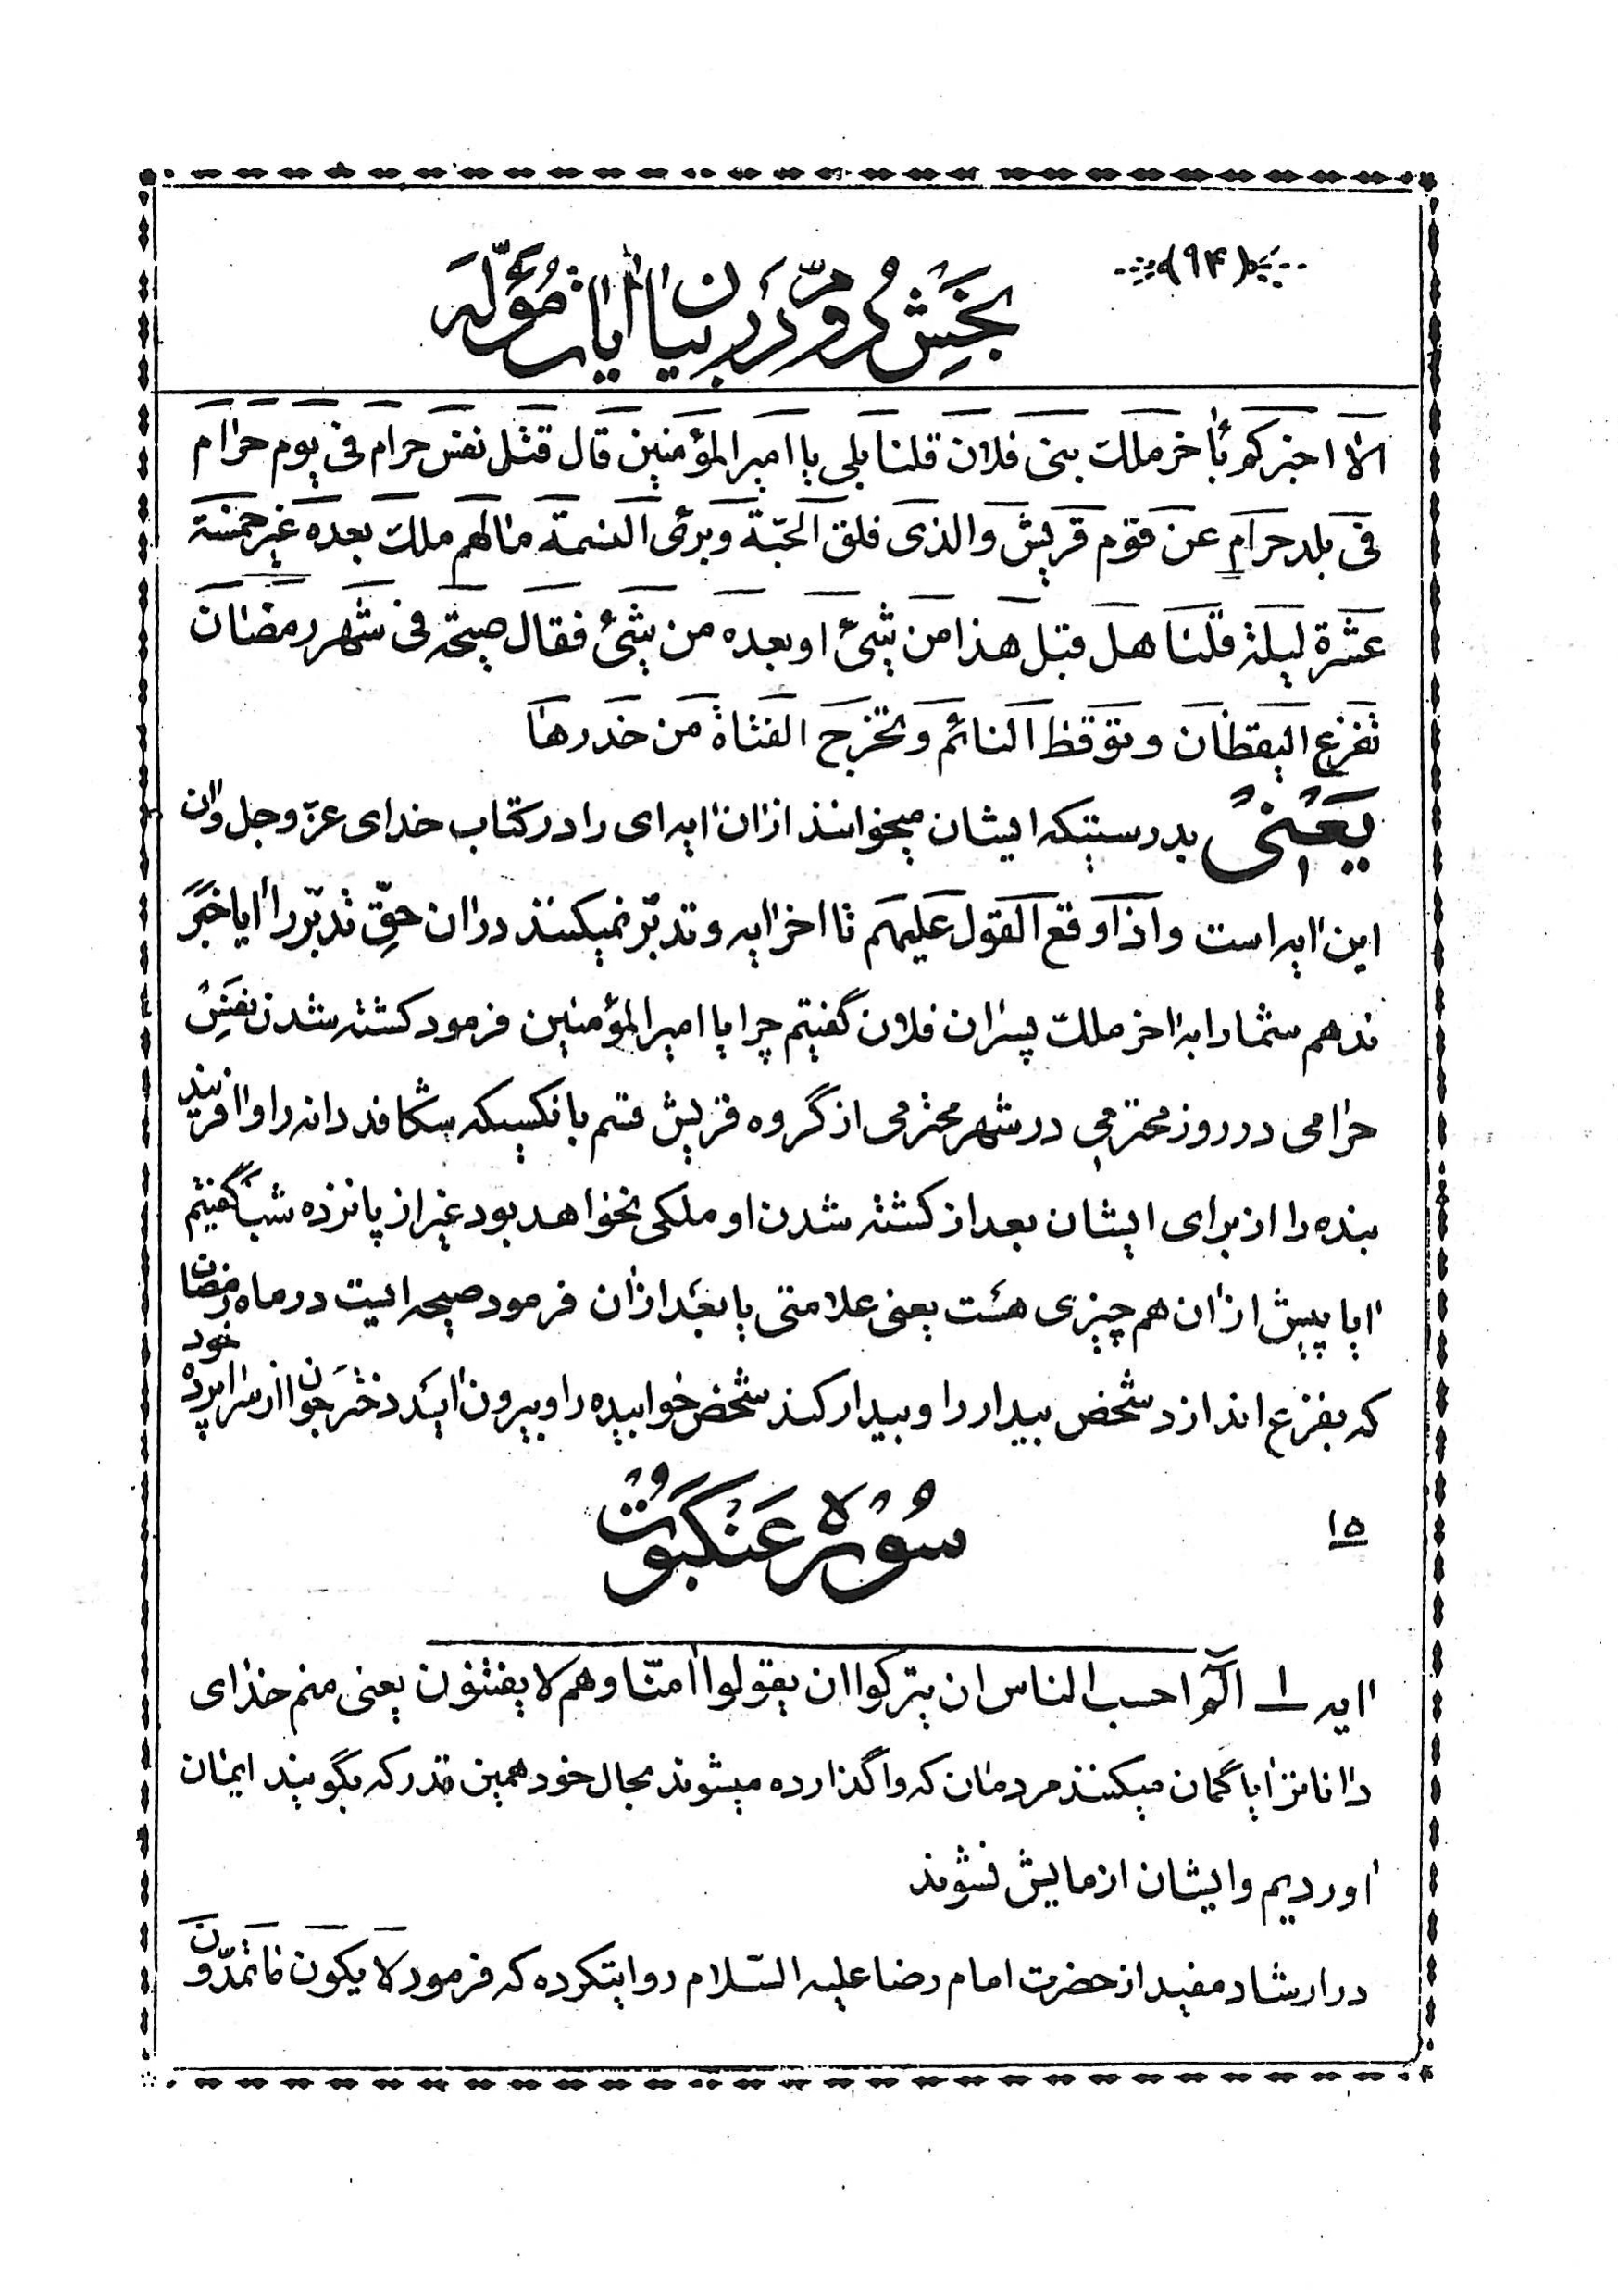 (۹۴)
بخش دوم در بیان ایات مؤله
الا اخبرکم بأخر ملک بنی فلان قلنا بلی یا امیر المؤمنین قال قتل نفس حرام فی یوم حرام
فی بلد حرام عن قوم قریش والذی فلق الحبّة وبرئ النسمة مالهم ملک بعده غیر خمسة
عشرة لیلة قلنا هل قبل هذا من شئ او بعده من شئ فقال صیحة فی شهر رمضان
تفزع الیقظان و توقظ النائم و تخرج الفتاة من خدرها
یعنی بدرستیکه ایشان میخوانند ازان ایه ای را در کتاب خدای عزّ وجل وان
این ایه است واذا وقع القول علیهم تا اخر ایه و تدبّر نمیکنند دران حقّ تدبّر را ایا خبر
ندهم شما را به اخر ملک پسران فلان گفتیم چرا یا امیر المؤمنین فرمود کشته شدن نفس
حرامی در روز محترمی در شهر محترمی از گروه قریش قسم بانکسیکه شکافد دانه را و افریند
بنده را از برای ایشان بعد از کشته شدن او ملکی نخواهد بود غیر از پانزده شب گفتیم
ایا پیش ازان هم چیزی هست یعنی علامتی یا بعد ازان فرمود صیحه ایست در ماه رمضان
که بفزع اندازد شخص بیدار را و بیدار کند شخص خوابیده را و بیرون اید دختر جوان از سراپرده خود
سوره عنکبوت
۱۵
ایه ۱ الٓم احسب الناس ان یترکوا ان یقولوا امنّا و هم لا یفتنون یعنی منم خدای
دانا تر ایا گمان میکنند مردمان که واگذارده میشوند بحال خود همین قدر که بگویند ایمان
اوردیم و ایشان ازمایش نشوند
در ارشاد مفید از حضرت امام رضا علیه السّلام روایتکرده که فرمود لا یکون ما تمدّون